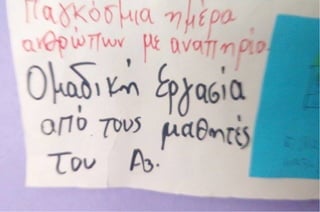 Παγκόσμια ημέρα
ανθρώπων με αναπηρία
Ομαδική Εργασία
από τους μαθητές
του Α3.